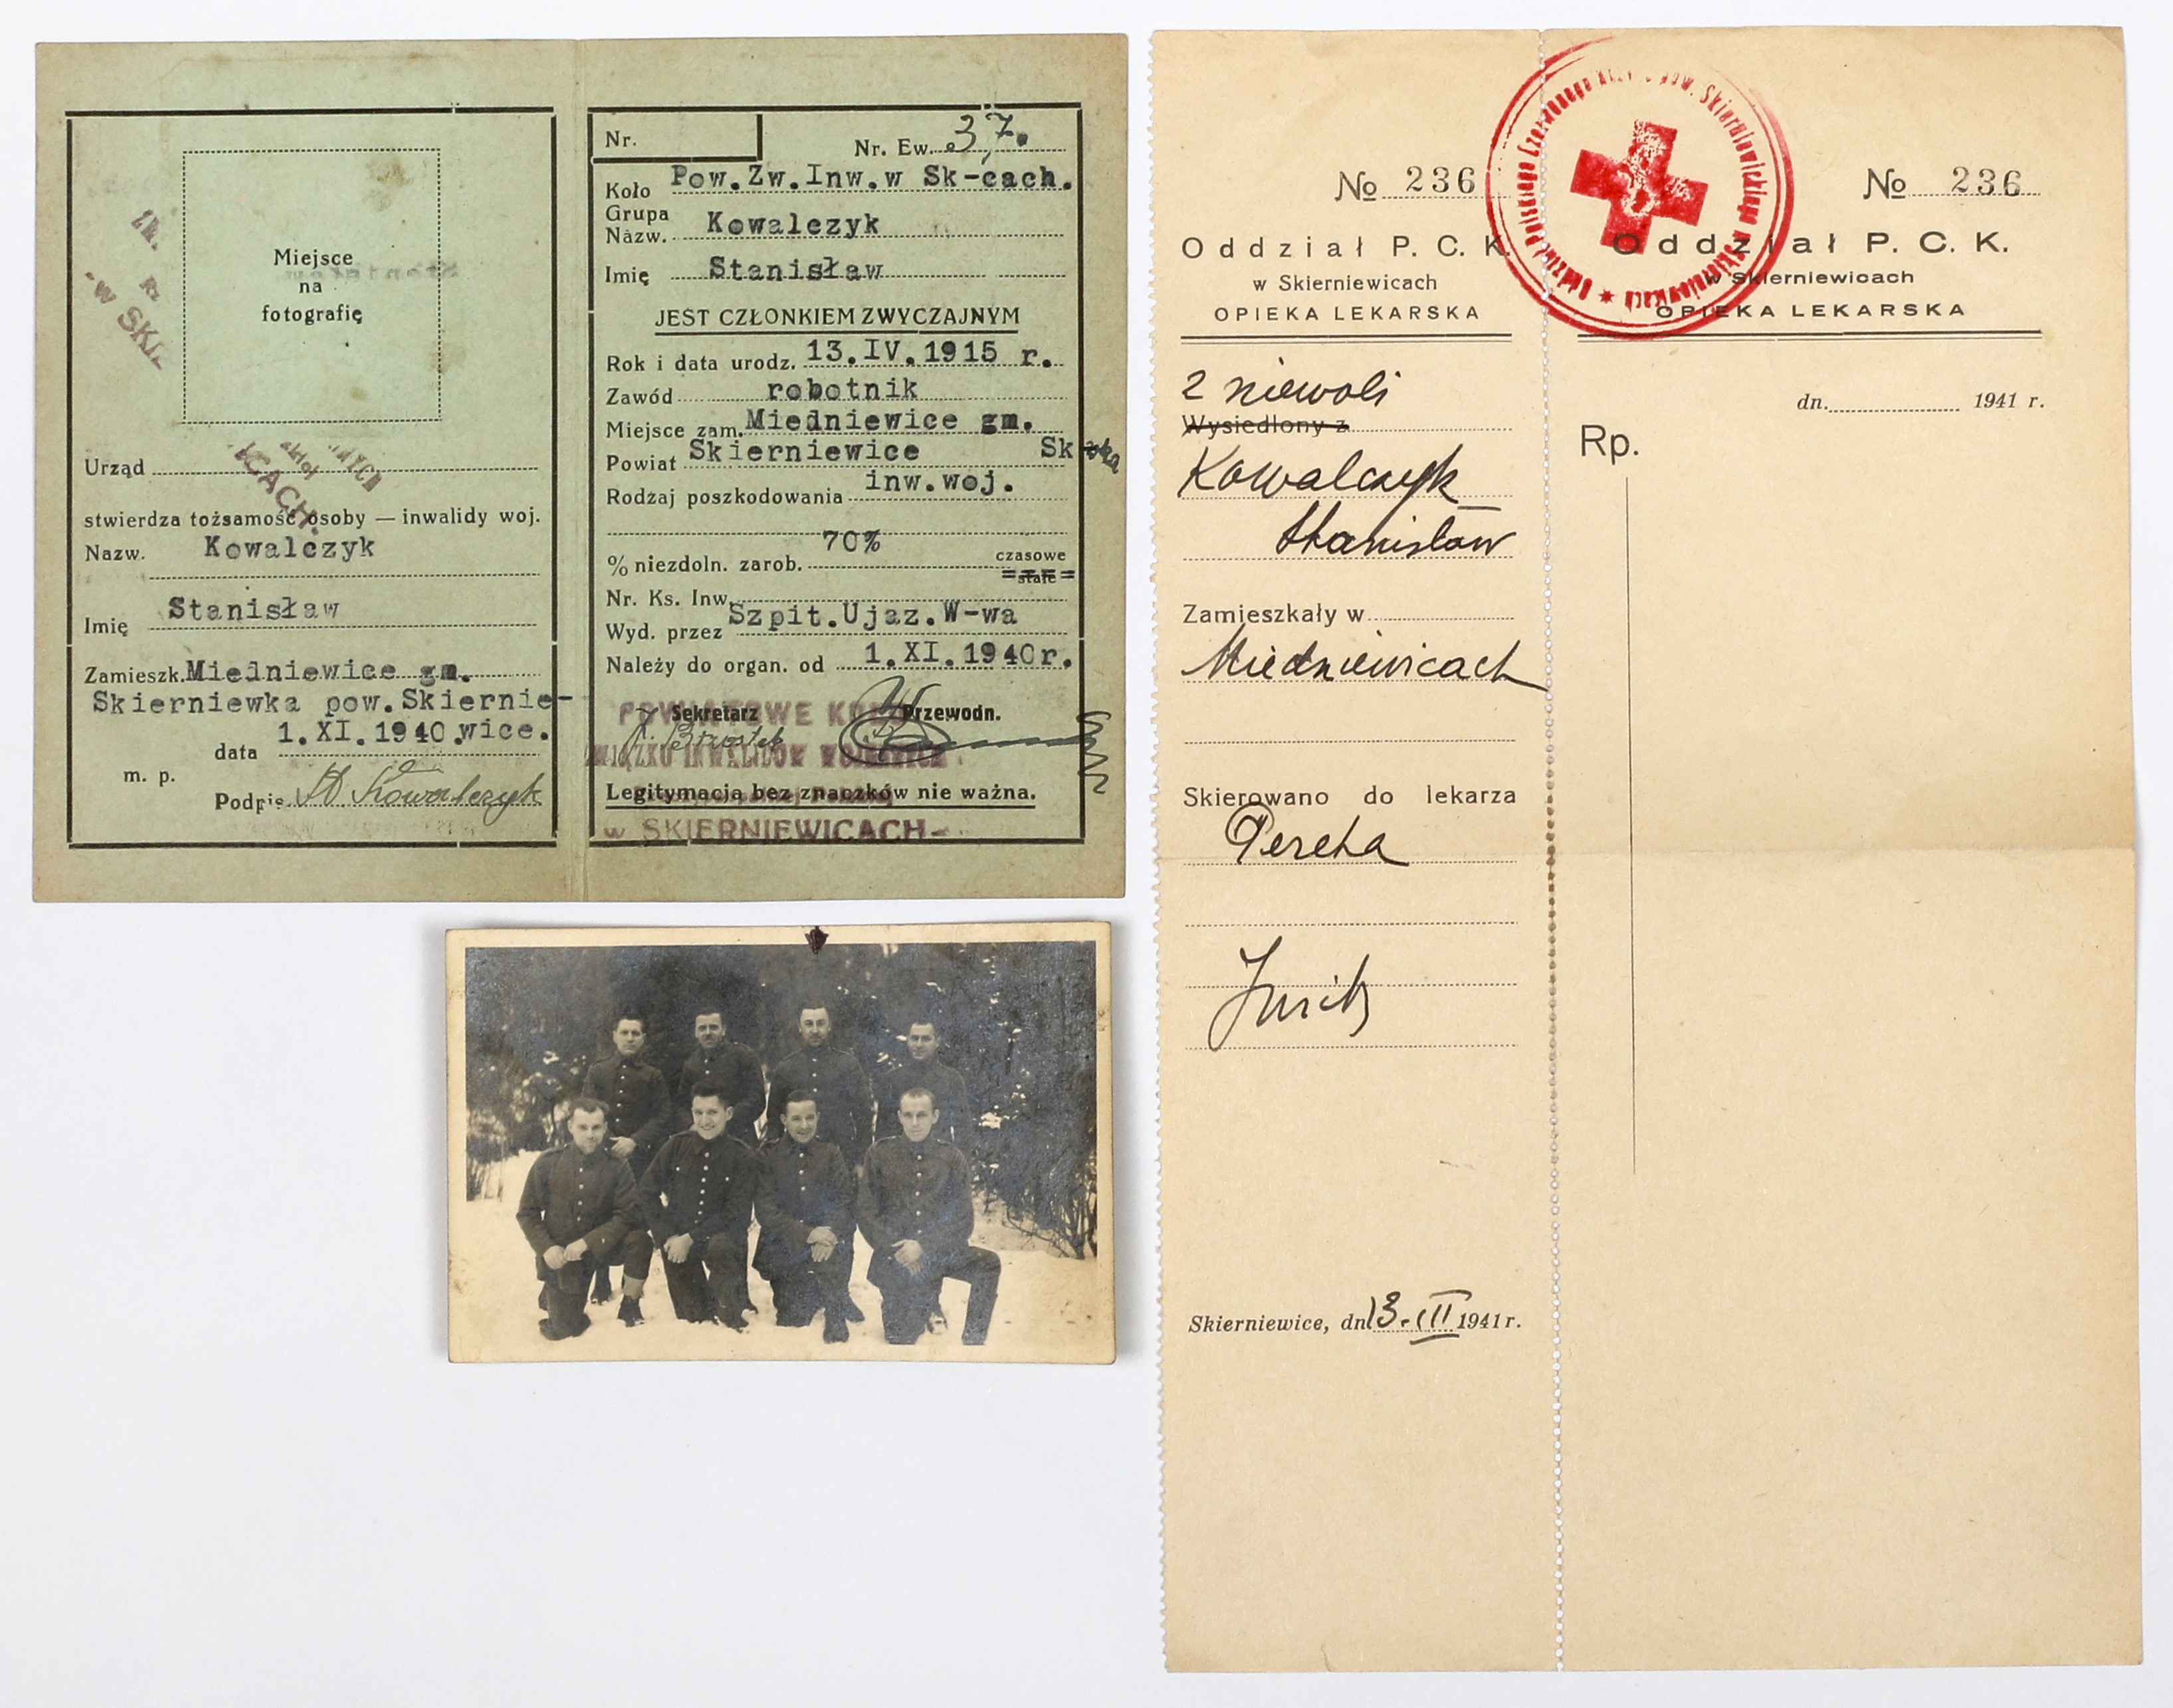 Miejsce
na
fotografię
Urząd
ICACH.
stwierdza tożsamość osoby — inwalidy woj.
Nazw. Kowalczyk
Imię Stanisław
Zamieszk. Miedniewice gm.
Skierniewka pow. Skiernie-
wice.
data 1.XI.1940
m. p.
Podpis St Kowalczyk
Nr.
Nr. Ew. 37.
Koło Pow.Zw.Inw.w Sk-cach.
Grupa
Nazw. Kowalczyk
Imię Stanisław
JEST CZŁONKIEM ZWYCZAJNYM
Rok i data urodz. 13.IV.1915 r.
Zawód robotnik
Miejsce zam. Miedniewice gm.
Sk-wka
Powiat Skierniewice
Rodzaj poszkodowania inw.woj.
% niezdoln. zarob. 70% czasowe
stałe
Nr. Ks. Inw.
Wyd. przez Szpit.Ujaz.W-wa
Należy do organ. od 1.XI.1940r.
POWIATOWE KOŁO
Sekretarz Przewodn.
ZWIĄZKU INWALIDÓW WOJENNYCH
Legitymacja bez znaczków nie ważna.
w SKIERNIEWICACH-
№ 236
Oddział P. C. K.
w Skierniewicach
OPIEKA LEKARSKA
z niewoli
Wysiedlony z
Kowalczyk
Stanisław
Zamieszkały w
Miedniewicach
Skierowano do lekarza
Pereta
Skierniewice, dn 13.III 1941 r.
№ 236
Oddział P. C. K.
w Skierniewicach
OPIEKA LEKARSKA
dn. 1941 r.
Rp.